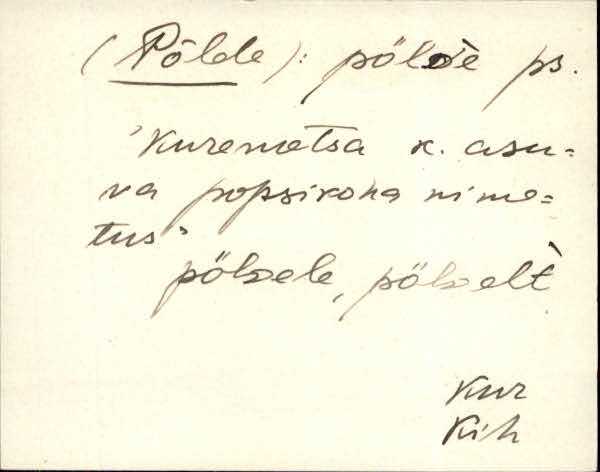 (Põlde): põlde ps.
'Kuremetsa k. asu-
va popsikoha nime-
tus'
põldele, põldelt
Kur
Kih